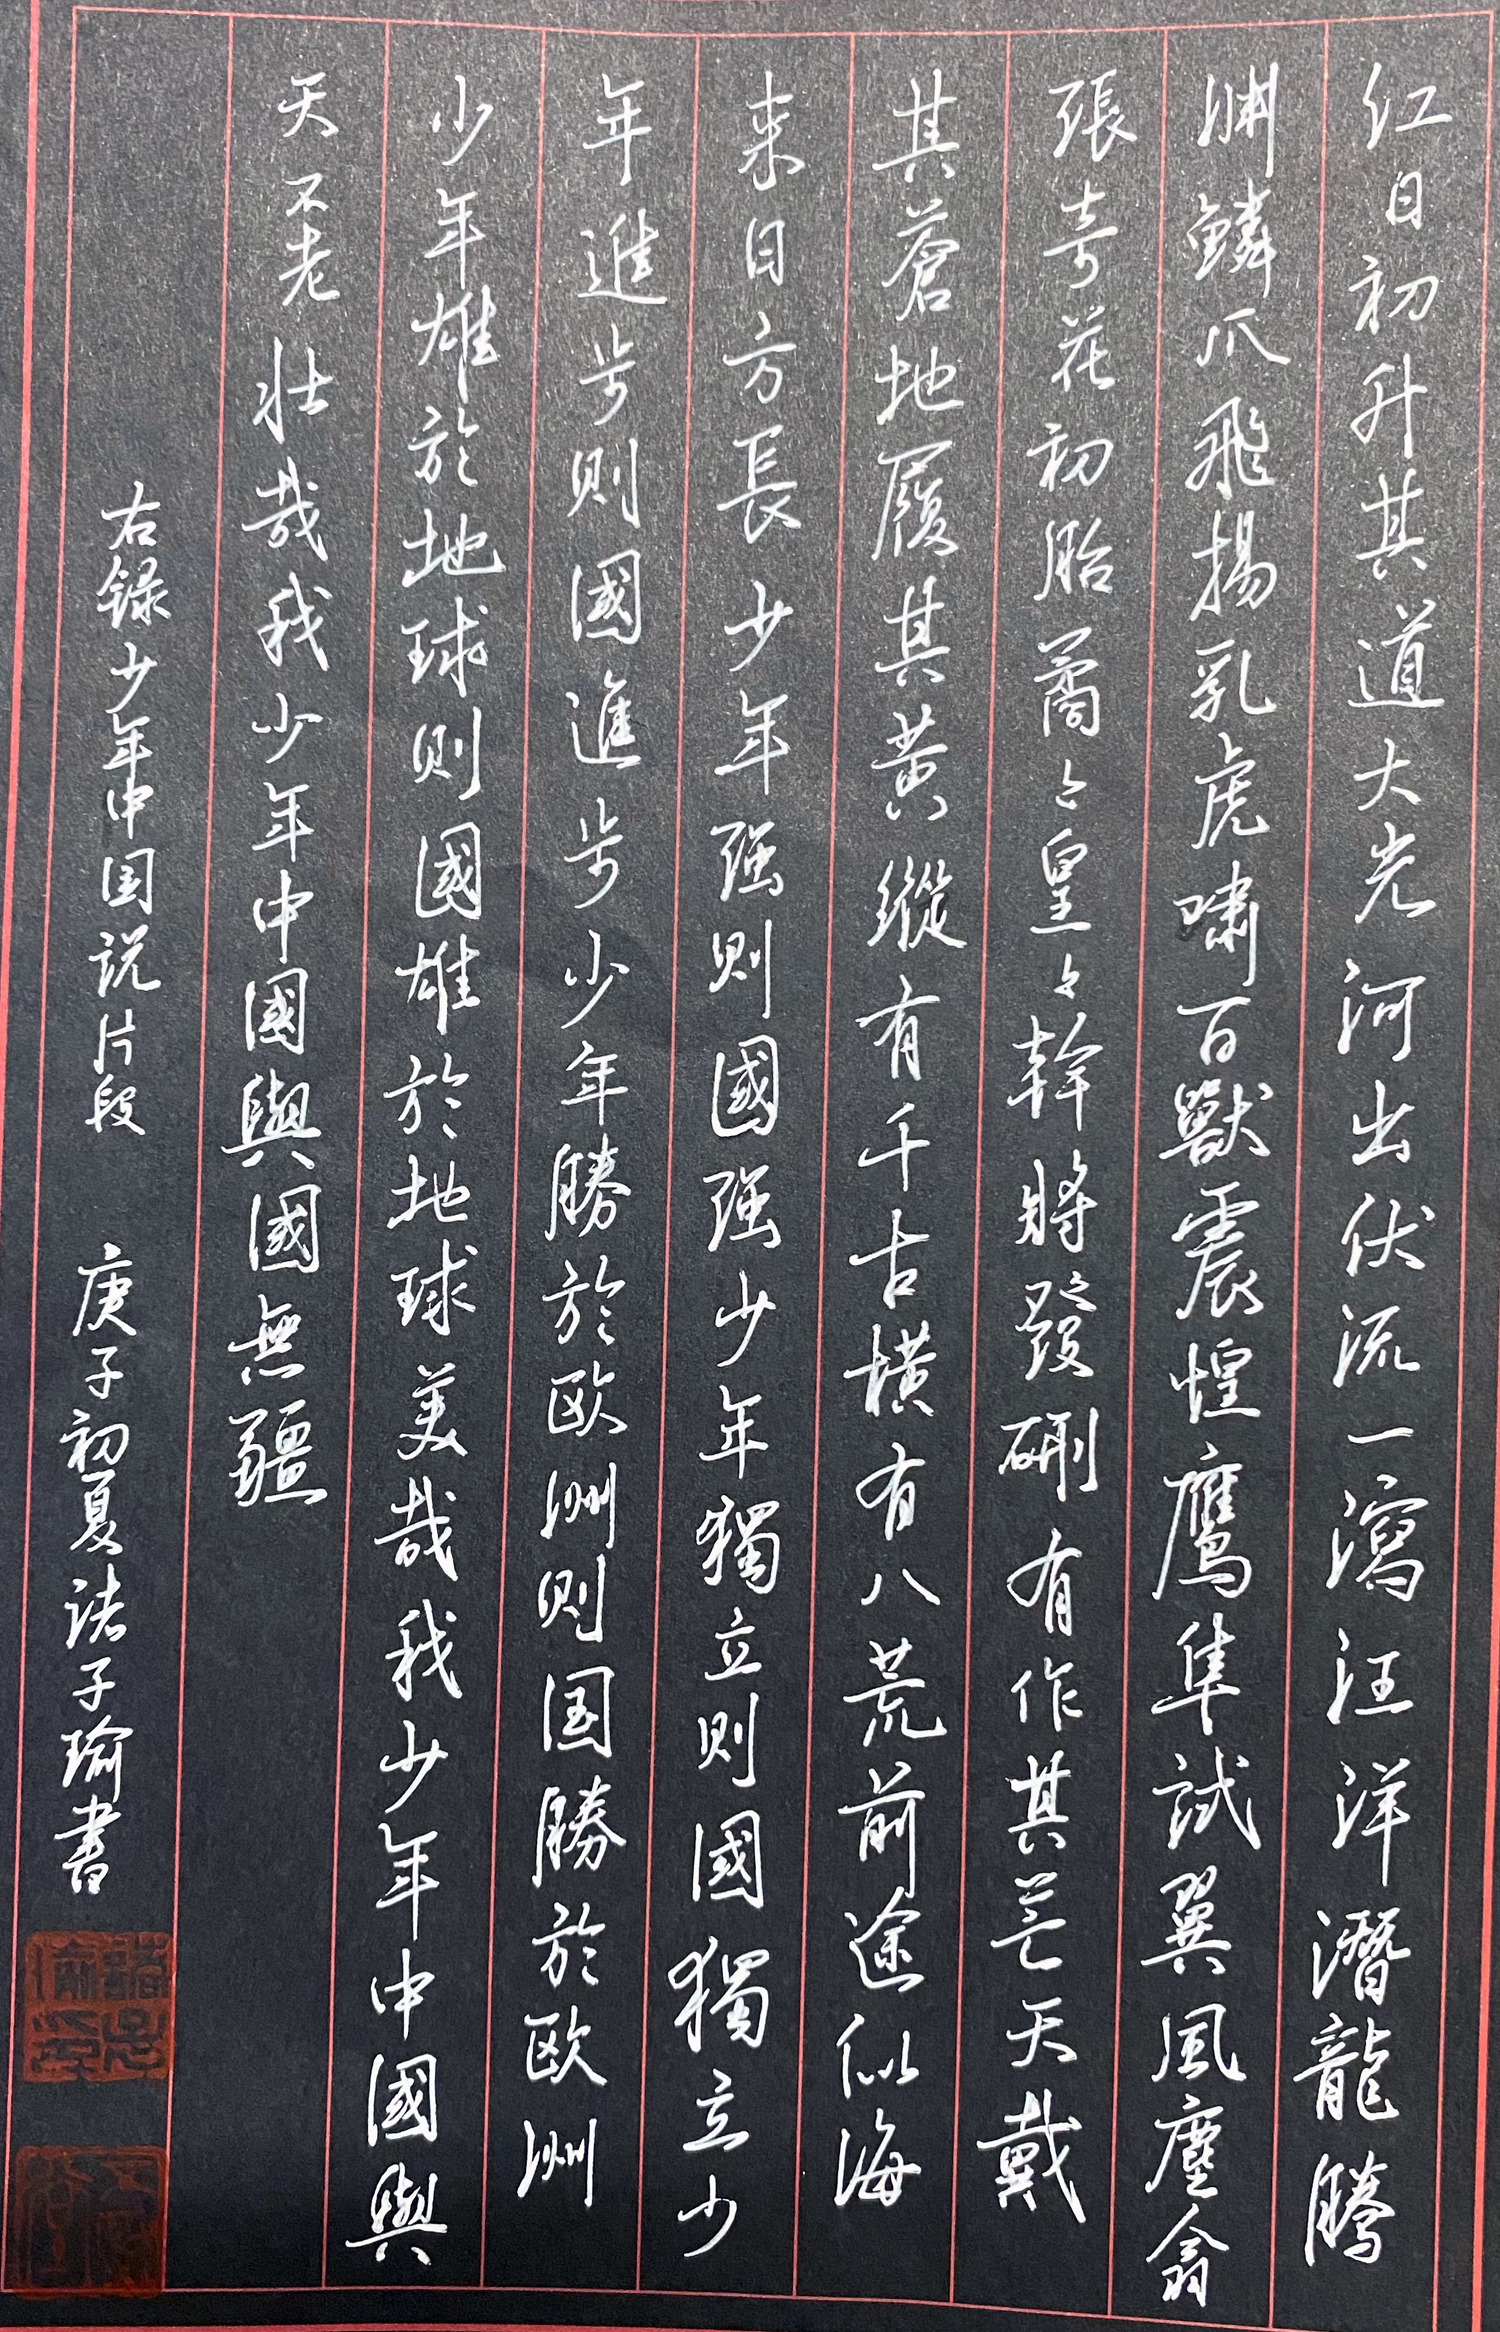 红日初升其道大光河出伏流一瀉汪洋潛龍騰
渊鱗爪飛揚乳虎啸百獸震惶鷹隼試翼風塵翕
張奇花初胎矞々皇々幹將發硎有作其芒天戴
其蒼地履其黃縱有千古橫有八荒前途似海
来日方長少年强則國强少年獨立則國獨立少
年進步則國進步少年勝於欧洲则国勝於欧洲
少年雄於地球则國雄於地球美哉我少年中國與
天不老壮哉我少年中國與國無疆
右録少年中国说片段 庚子初夏諸子瑜書